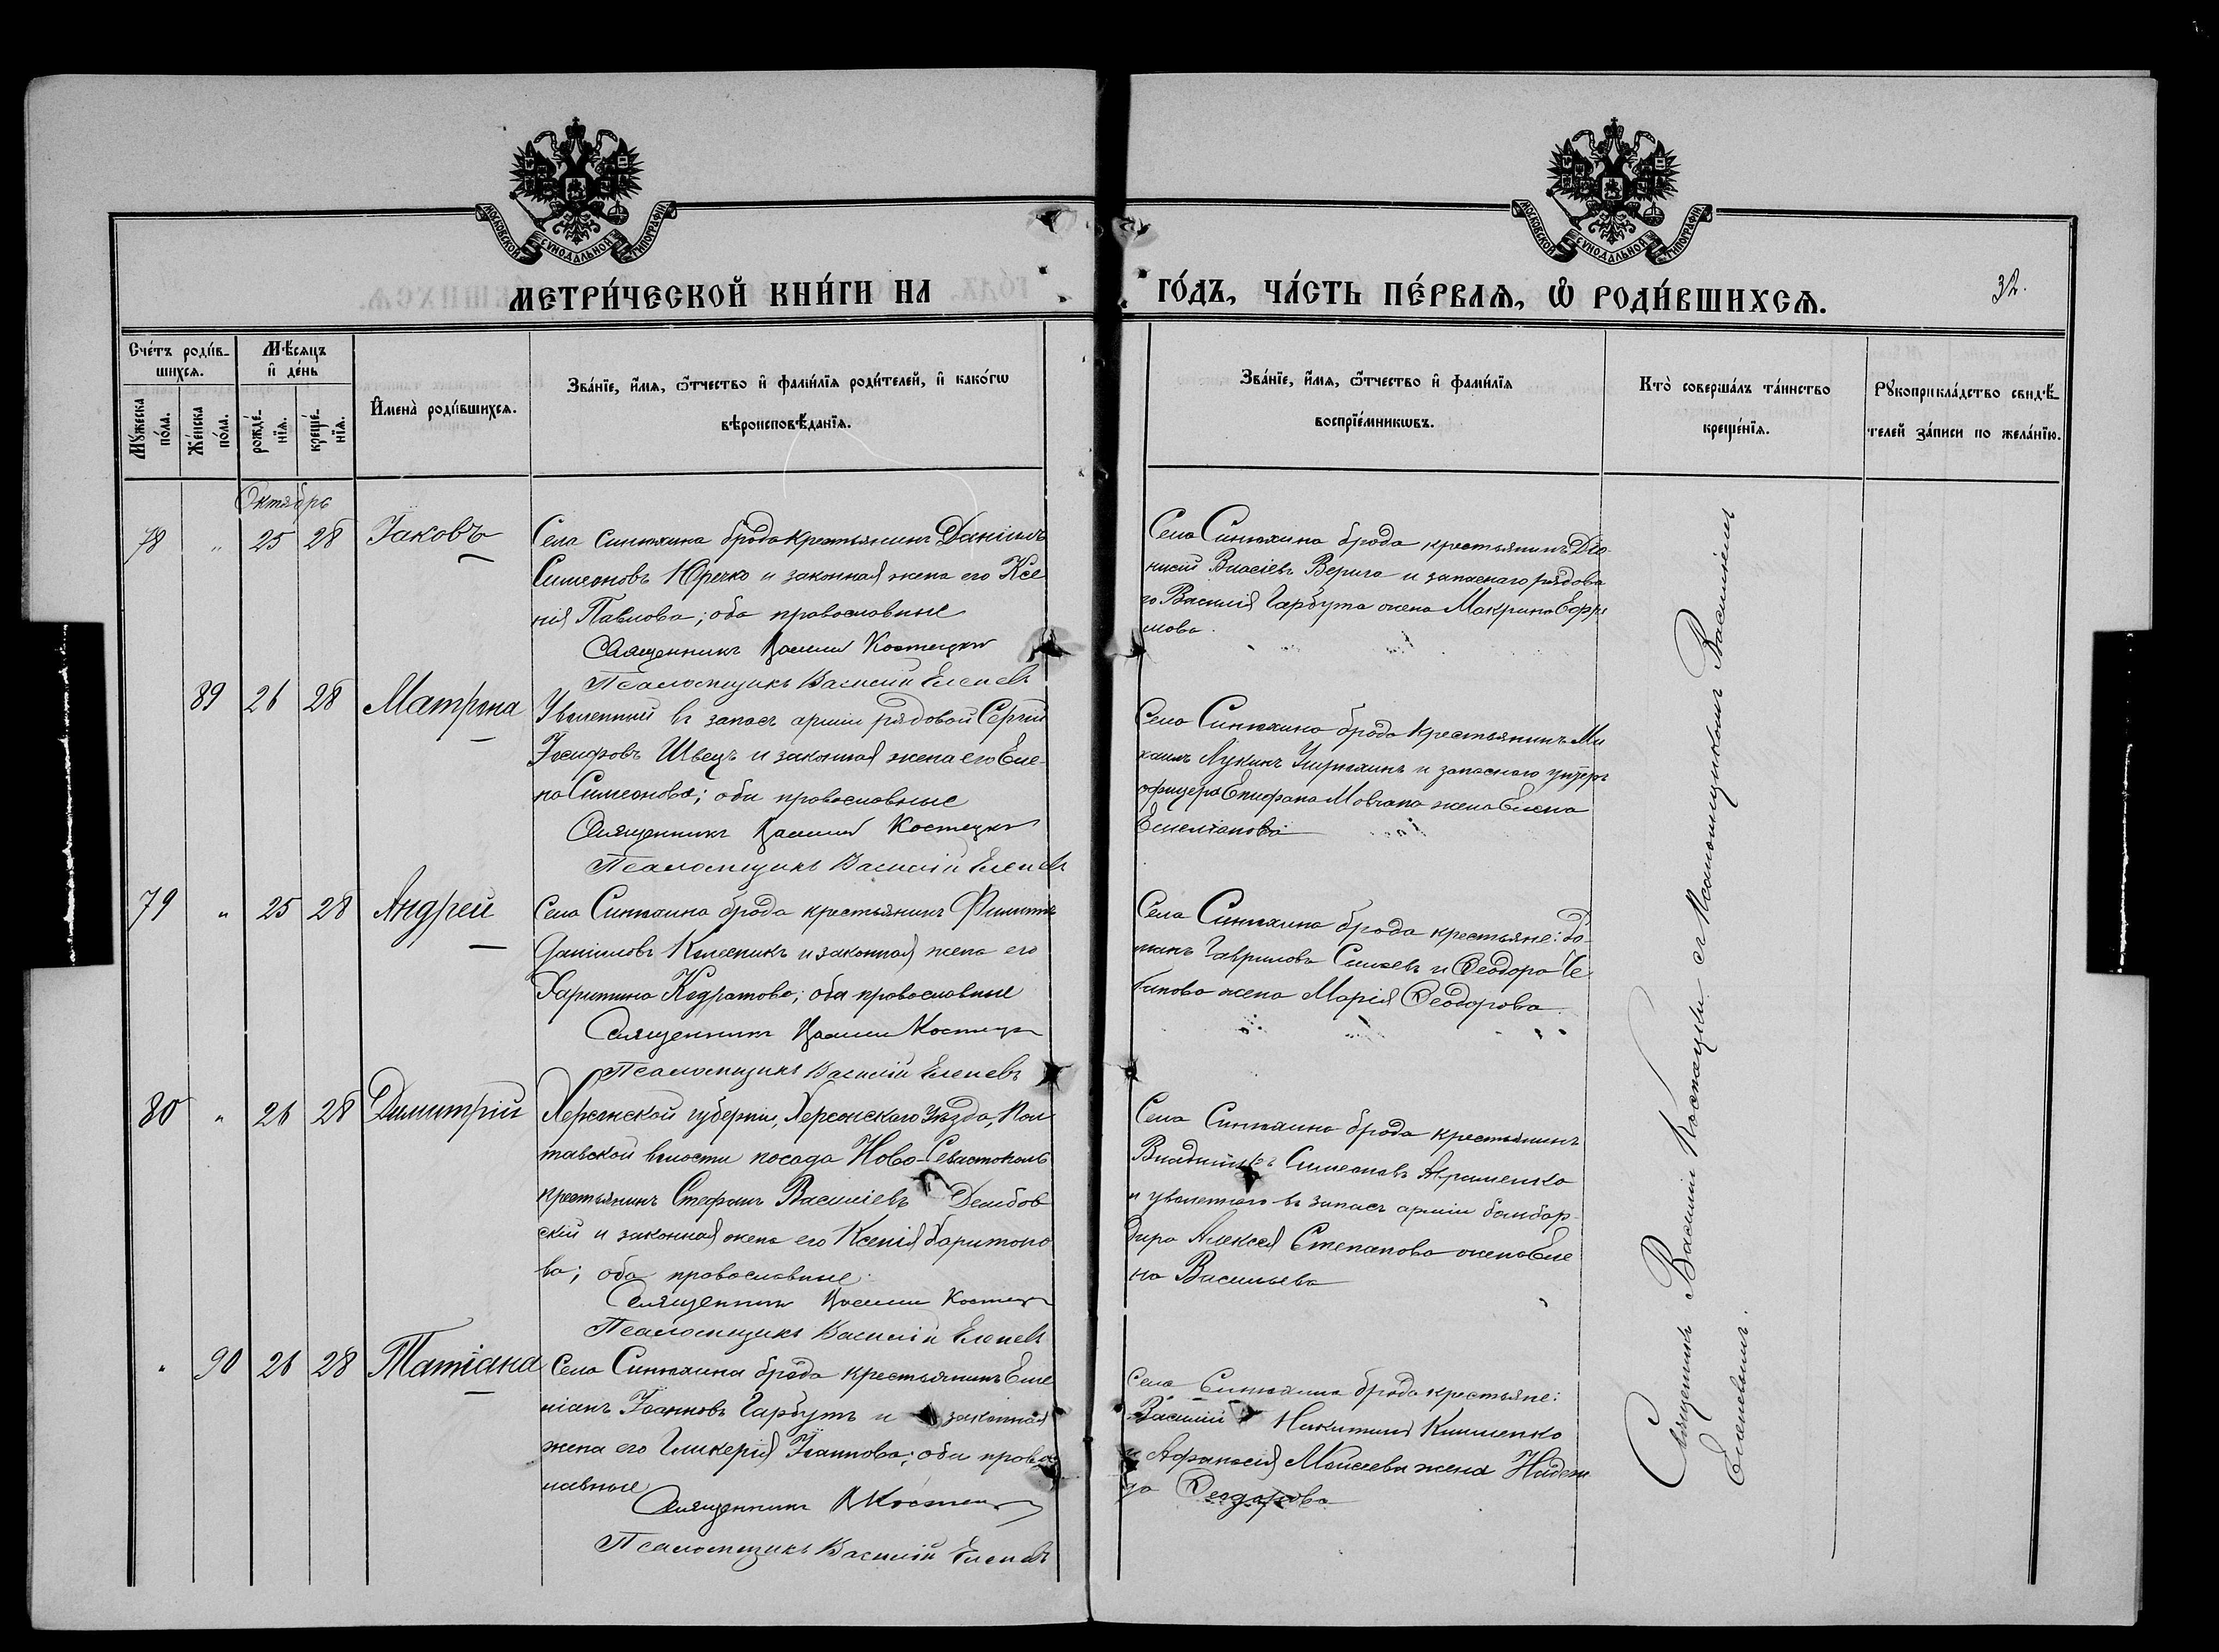 МОСКОВСКОЙ СѴНОДАЛЬНОЙ ТИПОГРАФІИ
МОСКОВСКОЙ СѴНОДАЛЬНОЙ ТИПОГРАФІИ
МЕТРИ́ЧЕСКОЙ КНИ́ГИ НА
ГО́ДЪ, ЧА́СТЬ ПЕ́РВАѦ, Ѽ РОДИ́ВШИХСѦ.
32.
Сче́тъ роди́в-
шихсѧ.
Мѣ́сѧцъ
и де́нь
Мꙋ́жеска
по́ла.
Же́нска
по́ла.
рожде́-
нїѧ.
креще́-
нїѧ.
Имена̀ роди́вшихсѧ.
Зва́нїе, и́мѧ, ѻ́тчество и фами́лїѧ роди́телей, и како́гѡ
вѣроисповѣ́данїѧ.
Зва́нїе, и́мѧ, ѻ́тчество и фами́лїѧ
воспрїе́мникѡвъ.
Кто̀ соверша́лъ та́инство
креще́нїѧ.
Рꙋкоприкла́дство свидѣ́-
телей за́писи по жела́нїю.
Октябрь
78 " 25 28 Іаковъ
Села Синюхина брода крестьянинъ Даніилъ
Симеоновъ Юречко и законная жена его Ксе
нія Павлова; оба православные
Священникъ Василий Костецкій
Псаломщикъ Василій Еленевъ
Села Синюхина брода крестьянинъ Діо-
нисій Власіевъ Верига и запаснаго рядова
го Василія Гарбуза жена Макрина Ефри
мова.
89 26 28 Матрона
Уволенный въ запасъ арміи рядовой Сергій
Іосифовъ Швецъ и законная жена его Еле-
на Симеонова; оба православные
Священникъ Василий Костецкій
Псаломщикъ Василій Еленевъ
Села Синюхина брода крестьянинъ Ми
хаилъ Лукинъ и запаснаго унтеръ
офицера Епифана Мовчана жена Елена
Емелианова
79 " 25 28 Андрей
Села Синюхина брода крестьянинъ Филиппъ
Даніиловъ Колесникъ и законная жена его
Харитина Кодратова; оба православные
Священникъ Василий Костецкій
Псаломщикъ Василій Еленевъ
Села Синюхина брода крестьяне:
Гаврилова и Ѳеодора Че
банова жена Марія Ѳеодорова.
80 " 26 28 Димитрій
Херсонской губерніи, Херсонскаго уѣзда, Пол
тавской волости посада Ново-Севастополь
крестьянинъ Стефанъ Василіевъ Дембов
скій и законная жена его Ксенія Харитоно
ва; оба православные.
Священникъ Василий Костецкій
Псаломщикъ Василій Еленевъ
Села Синюхина брода крестьянинъ
Владиміръ Симеоновъ Авраменко
и уволеннаго въ запасъ арміи бомбар-
дира Алексея Степанова жена Еле
на Васильева
" 90 26 28 Татіана
Села Синюхина брода крестьянинъ Еме
ліанъ Іоанновъ Гарбузъ и законная
жена его Гликерія Іоаннова; оба правос
лавные
Священникъ В Костецкій
Псаломщикъ Василій Еленевъ
Села Синюхина брода крестьяне:
Василій Никитинъ Клименко
и Афанасія Моисеева жена Надеж
да Ѳеодорова
Священникъ Василій Костецкій съ Псаломщикомъ Василіемъ
Еленевымъ.